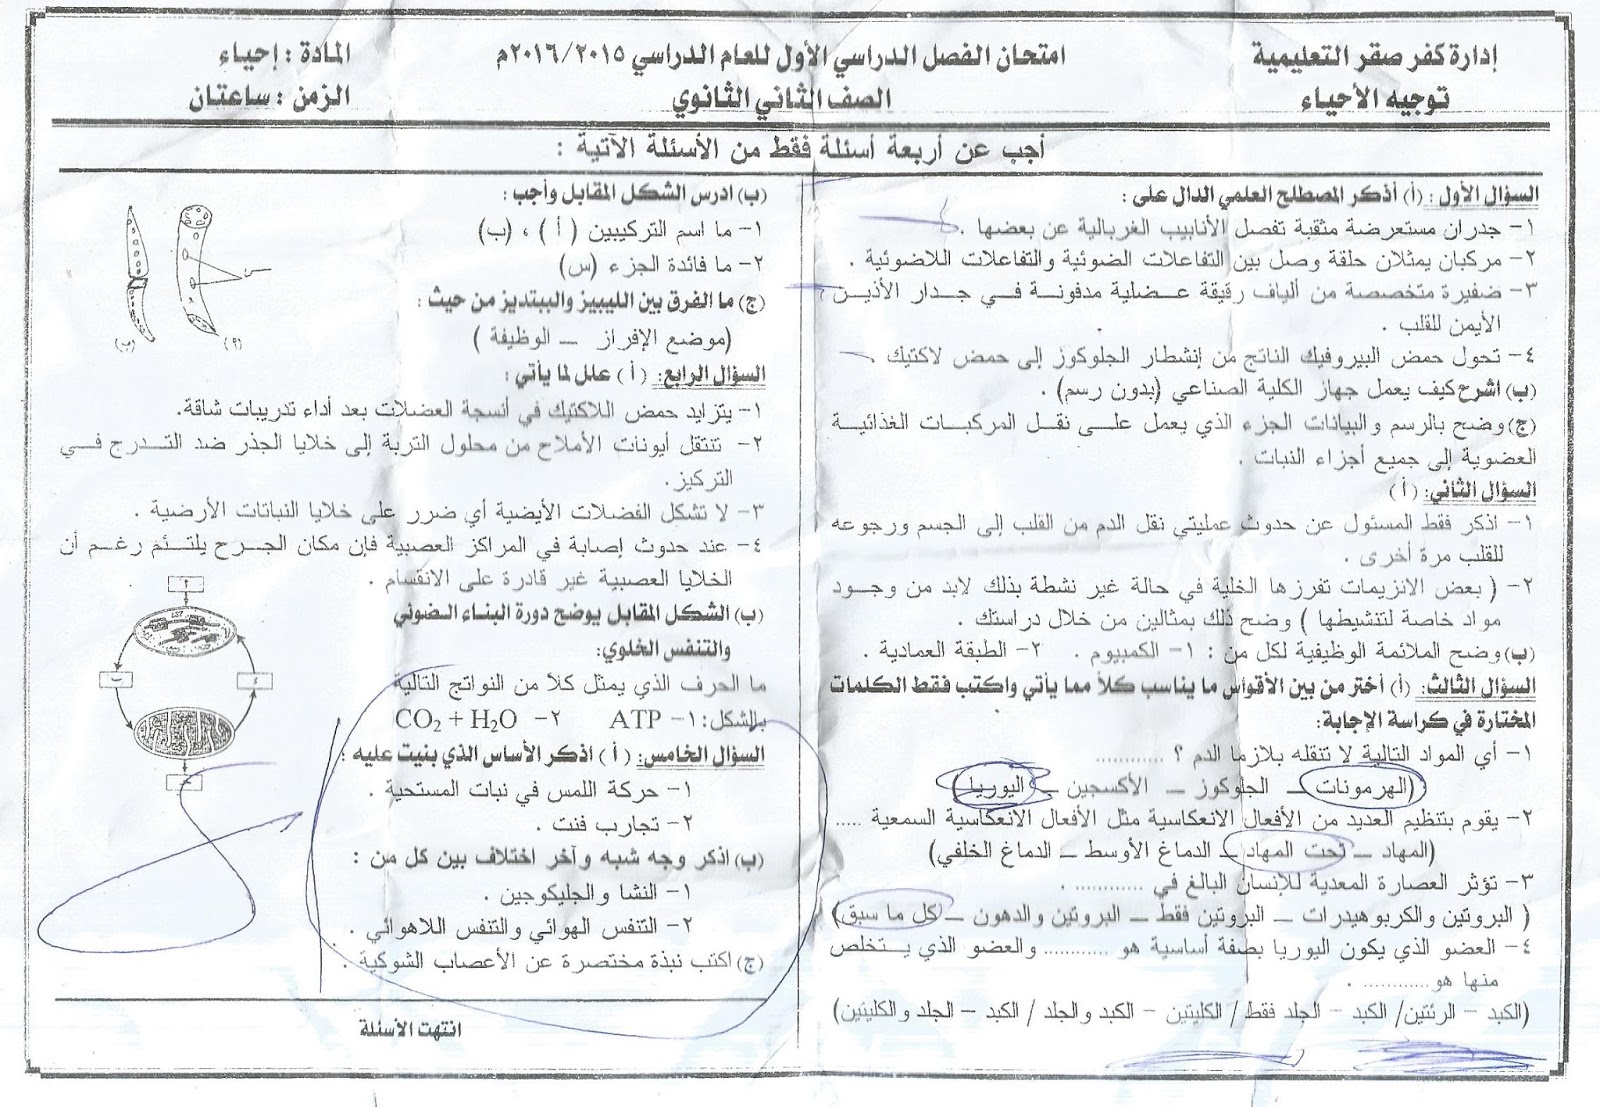 إدارة كفر صقر التعليمية
توجيه الأحياء
امتحان الفصل الدراسي الأول للعام الدراسي ٢٠١٦/٢٠١٥م
الصف الثاني الثانوي
المادة : إحياء
الزمن : ساعتان
أجب عن أربعة أسئلة فقط من الأسئلة الآتية :
السؤال الأول : (أ) أذكر المصطلح العلمي الدال على :
١- جدران مستعرضة مثقبة تفصل الأنابيب الغربالية عن بعضها .
٢- مركبان يمثلان حلقة وصل بين التفاعلات الضوئية والتفاعلات اللاضوئية .
٣- ضفيرة متخصصة من ألياف رقيقة عضلية مدفونة في جدار الأذين
الأيمن للقلب .
٤- تحول حمض البيروفيك الناتج من إنشطار الجلوكوز إلى حمض لاكتيك
(ب) اشرح كيف يعمل جهاز الكلية الصناعي (بدون رسم) .
(ج) وضح بالرسم والبيانات الجزء الذي يعمل على نقل المركبات الغذائية
العضوية إلى جميع أجزاء النبات .
السؤال الثاني: (أ)
١- اذكر فقط المسئول عن حدوث عمليتي نقل الدم من القلب إلى الجسم ورجوعه
للقلب مرة أخرى .
٢- ( بعض الانزيمات تفرزها الخلية في حالة غير نشطة بذلك لابد من وجود
مواد خاصة لتنشيطها ) وضح ذلك بمثالين من خلال دراستك .
(ب) وضح الملائمة الوظيفية لكل من : ١- الكمبيوم . ٢- الطبقة العمادية .
السؤال الثالث: (أ) أختر من بين الأقواس ما يناسب كلاً مما يأتي واكتب فقط الكلمات
المختارة في كراسة الإجابة:
١- أي المواد التالية لا تنقله بلازما الدم ؟ ............
(الهرمونات – الجلوكوز – الأكسجين – اليوريا)
٢- يقوم بتنظيم العديد من الأفعال الانعكاسية مثل الأفعال الانعكاسية السمعية .....
(المهاد – تحت المهاد – الدماغ الأوسط – الدماغ الخلفي)
٣- تؤثر العصارة المعدية للإنسان البالغ في ............ .
( البروتين والكربوهيدرات – البروتين فقط – البروتين والدهون – كل ما سبق)
٤- العضو الذي يكون اليوريا بصفة أساسية هو ............ والعضو الذي يتخلص
منها هو............ .
(الكبد – الرئتين/ الكبد – الجلد فقط/ الكليتين – الكبد والجلد/ الكبد – الجلد والكليتين)
(ب) ادرس الشكل المقابل وأجب :
١- ما اسم التركيبين ( أ ) ، (ب)
٢- ما فائدة الجزء (س)
س
(أ)
(ب)
(ج) ما الفرق بين الليبيز والببتديز من حيث :
(موضع الإفراز – الوظيفة )
السؤال الرابع: ( أ ) علل لما يأتي :
١- يتزايد حمض اللاكتيك في أنسجة العضلات بعد أداء تدريبات شاقة.
٢- تنتقل أيونات الأملاح من محلول التربة إلى خلايا الجذر ضد التدرج في
التركيز.
٣- لا تشكل الفضلات الأيضية أي ضرر على خلايا النباتات الأرضية .
٤- عند حدوث إصابة في المراكز العصبية فإن مكان الجرح يلتئم رغم أن
الخلايا العصبية غير قادرة على الانقسام .
(ب) الشكل المقابل يوضح دورة البناء الضوئي
والتنفس الخلوي:
ما الحرف الذي يمثل كلاً من النواتج التالية
بالشكل: ١- ATP ٢- CO₂ + H₂O
السؤال الخامس: ( أ ) اذكر الأساس الذي بنيت عليه :
١- حركة اللمس في نبات المستحية .
٢- تجارب فنت .
(ب) اذكر وجه شبه وآخر اختلاف بين كل من :
١- النشا والجليكوجين .
٢- التنفس الهوائي والتنفس اللاهوائي .
(ج) اكتب نبذة مختصرة عن الأعصاب الشوكية .
انتهت الأسئلة